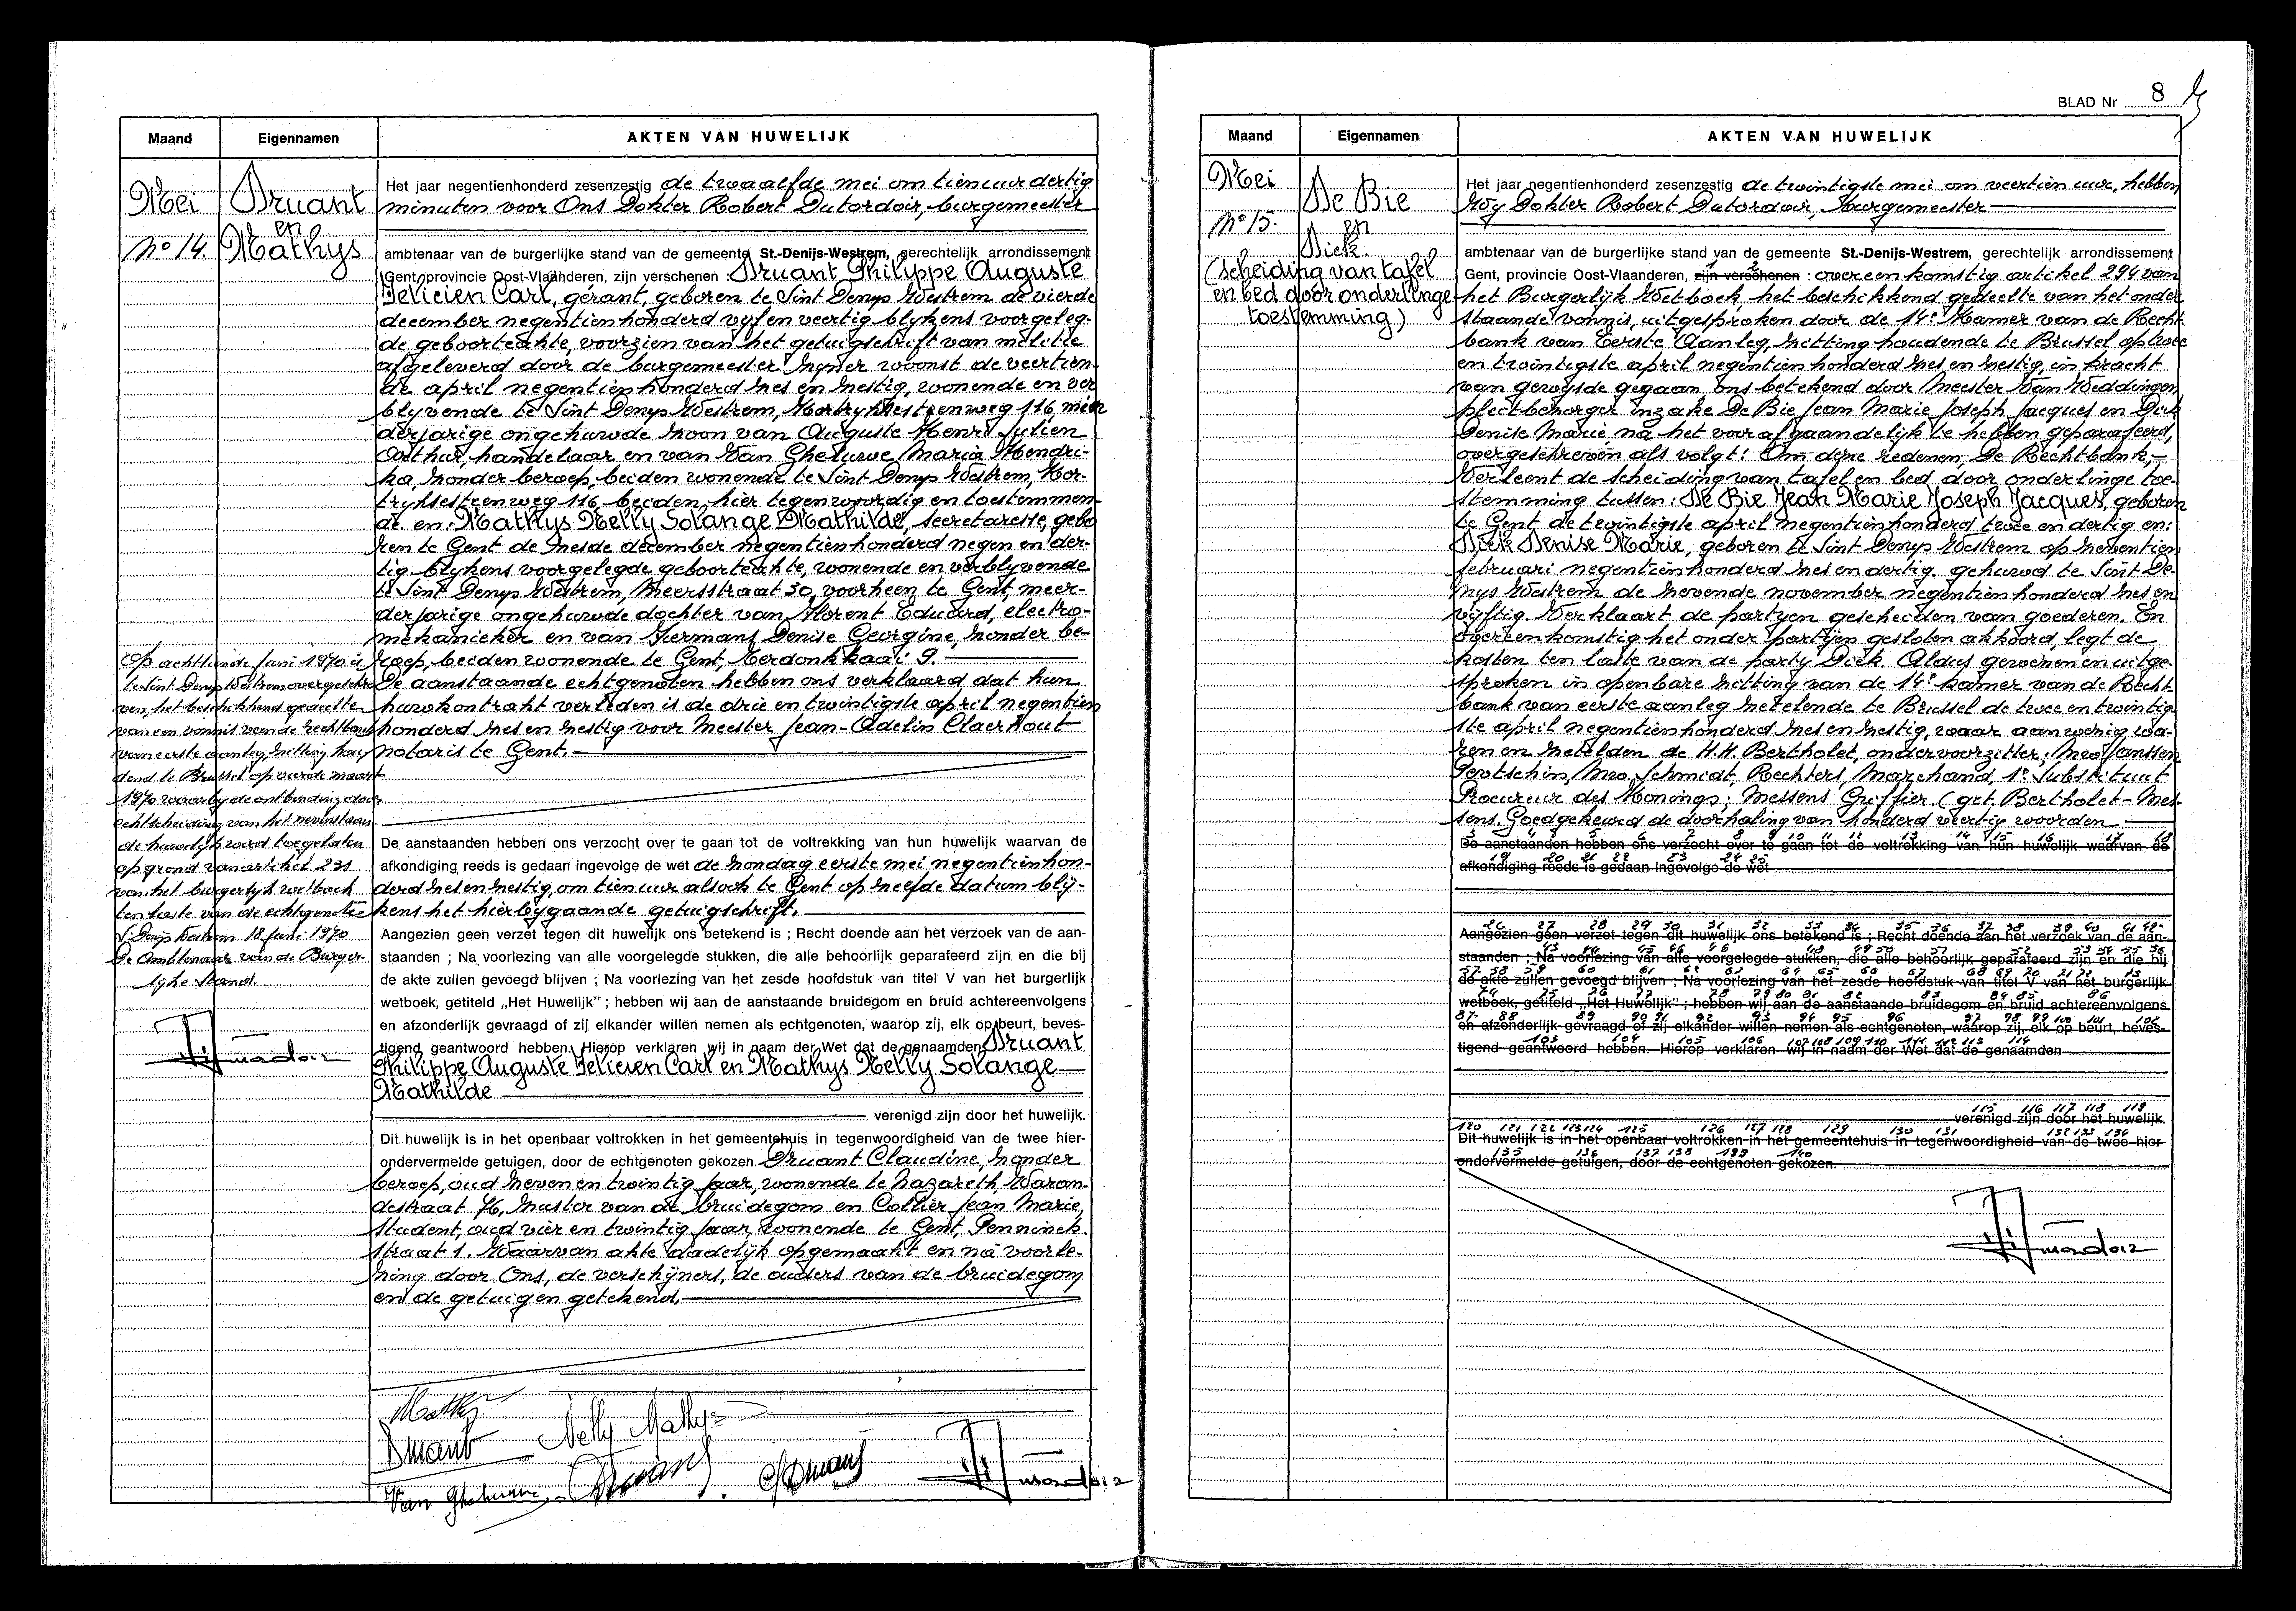 Maand Eigennamen AKTEN VAN HUWELIJK
Mei
No 14.
Druant
en
Mathys
Het jaar negentienhonderd zesenzestig de twaalfde mei om tien uur dertig
minuten voor Ons Dokter Robert Dutordoir, burgemeester
ambtenaar van de burgerlijke stand van de gemeente St.-Denijs-Westrem, gerechtelijk arrondissement
Gent, provincie Oost-Vlaanderen, zijn verschenen : Druant Philippe Auguste
Felicien Carl, gérant, geboren te Sint Denys Westrem de vierde
december negentienhonderd vyf en veertig blykens voorgeleg-
de geboorteakte, voorzien van het getuigschrift van militie
afgeleverd door de burgemeester zyner woonst de veertien-
de april negentienhonderd zes en zestig, wonende en ver
blyvende te Sint Denys Westrem, Kortryksesteenweg 116, min
derjarige ongehuwde zoon van Auguste Henri Julien
Arthur, handelaar en van Van Gheluwe Maria Hendri-
ka, zonder beroep, beiden wonende te Sint Denys Westrem, Kor-
tryksesteenweg 116, beiden, hier tegenwoordig en toestemmen-
de. en: Mathys Nelly Solange Mathilde, secretaresse, gebo
ren te Gent de zesde december negentienhonderd negen en der-
tig blykens voorgelegde geboorteakte, wonende en verblyvende
te Sint Denys Westrem, Meersstraat 30, voorheen te Gent, meer-
derjarige ongehuwde dochter van Florent Eduard, electro-
mekanieker en van Hermans Denise Georgine, zonder be-
roep, beiden wonende te Gent, Berdonkkaai 9.
De aanstaande echtgenoten hebben ons verklaard dat hun
huwkontrakt verleden is de drie en twintigste april negentien
honderd zes en zestig voor Meester Jean-Adelin Claerhout
notaris te Gent.
De aanstaanden hebben ons verzocht over te gaan tot de voltrekking van hun huwelijk waarvan de
afkondiging reeds is gedaan ingevolge de wet de zondag eerste mei negentienhon-
derd zes en zestig, om tien uur alsook te Gent op zelfde datum blij-
kens het hierbygaande getuigschrift.
Aangezien geen verzet tegen dit huwelijk ons betekend is ; Recht doende aan het verzoek van de aan-
staanden ; Na voorlezing van alle voorgelegde stukken, die alle behoorlijk geparafeerd zijn en die bij
de akte zullen gevoegd blijven ; Na voorlezing van het zesde hoofdstuk van titel V van het burgerlijk
wetboek, getiteld „Het Huwelijk" ; hebben wij aan de aanstaande bruidegom en bruid achtereenvolgens
en afzonderlijk gevraagd of zij elkander willen nemen als echtgenoten, waarop zij, elk op beurt, beves-
tigend geantwoord hebben. Hierop verklaren wij in naam der Wet dat de genaamden Druant
Philippe Auguste Felicien Carl en Mathys Nelly Solange
Mathilde
verenigd zijn door het huwelijk.
Dit huwelijk is in het openbaar voltrokken in het gemeentehuis in tegenwoordigheid van de twee hier-
ondervermelde getuigen, door de echtgenoten gekozen. Druant Claudine, zonder
beroep, oud zeven en twintig jaar, wonende te Nazareth, Waran-
destraat 76, zuster van de bruidegom en Collier Jean Marie,
student, oud vier en twintig jaar, wonende te Gent, Penninck-
straat 1. Waarvan akte dadelijk opgemaakt en na voorle-
zing door Ons, de verschijners, de ouders van de bruidegom
en de getuigen getekend.
Op achttiende juni 1970 is
te Sint Denys Westrem overgeschre
ven, het beschikkend gedeelte
van een vonnis van de rechtbank
van eerste aanleg zitting hou
dend te Brussel op vierde maart
1970 waarby de ontbinding door
echtscheiding van het nevenstaan
de huwelijk werd toegelaten
op grond van artikel 231
van het burgerlyk wetboek
ten laste van de echtgenote
St Denys Westrem 18 juni 1970
De Ambtenaar van de Burger
lijke Stand.
Nelly Mathys
Druant
BLAD Nr 8
Maand Eigennamen AKTEN VAN HUWELIJK
Mei
No 15.
De Bie
en
Dick
(scheiding van tafel
en bed door onderlinge
toestemming)
Het jaar negentienhonderd zesenzestig de twintigste mei om veertien uur, hebben
Wy Dokter Robert Dutordoir, burgemeester
ambtenaar van de burgerlijke stand van de gemeente St.-Denijs-Westrem, gerechtelijk arrondissement
Gent, provincie Oost-Vlaanderen, zijn verschenen : overeenkomstig artikel 294 van
het Burgerlijk Wetboek het beschikkend gedeelte van het onder
staande vonnis, uitgesproken door de 14e Kamer van de Recht
bank van Eerste Aanleg, zitting houdende te Brussel op twee
en twintigste april negentienhonderd zes en zestig, in kracht
van gewysde gegaan, ons betekend door Meester Van Weddingen
pleitbezorger inzake De Bie Jean Marie Joseph Jacques en Dick
Denise Marie, na het voorafgaandelijk te hebben geparafeerd,
overgeschreven als volgt: Om deze redenen, De Rechtbank,
Verleent de scheiding van tafel en bed door onderlinge toe-
stemming tussen: De Bie Jean Marie Joseph Jacques, geboren
te Gent de twintigste april negentienhonderd twee en dertig en:
Dick Denise Marie, geboren te Sint Denys Westrem op zeventien
februari negentienhonderd zes en dertig. gehuwd te Sint De-
nys Westrem de zevende november negentienhonderd zes en
vijftig. Verklaart de partyen gescheiden van goederen. En
overeenkomstig het onder partijen gesloten akkoord, legt de
kosten ten laste van de party Dick. Aldus gewezen en uitge-
sproken in openbare zitting van de 14e kamer van de Recht-
bank van eerste aanleg zetelende te Brussel de twee en twintig
ste april negentienhonderd zes en zestig, waar aanwezig wa-
ren en zetelden de H.H. Bertholet, ondervoorzitter; Mw Janssen
Pevtschin, Mw. Schmidt, Rechters, Marchand, 1e Substituut
Procureur des Konings; Messens Griffier. (get. Bertholet-Mes-
sens. Goedgekeurd de doorhaling van honderd veertig woorden
De aanstaanden hebben ons verzocht over te gaan tot de voltrekking van hun huwelijk waarvan de
afkondiging reeds is gedaan ingevolge de wet
Aangezien geen verzet tegen dit huwelijk ons betekend is ; Recht doende aan het verzoek van de aan-
staanden ; Na voorlezing van alle voorgelegde stukken, die alle behoorlijk geparafeerd zijn en die bij
de akte zullen gevoegd blijven ; Na voorlezing van het zesde hoofdstuk van titel V van het burgerlijk
wetboek, getiteld „Het Huwelijk" ; hebben wij aan de aanstaande bruidegom en bruid achtereenvolgens
en afzonderlijk gevraagd of zij elkander willen nemen als echtgenoten, waarop zij, elk op beurt, beves-
tigend geantwoord hebben. Hierop verklaren wij in naam der Wet dat de genaamden
verenigd zijn door het huwelijk.
Dit huwelijk is in het openbaar voltrokken in het gemeentehuis in tegenwoordigheid van de twee hier-
ondervermelde getuigen, door de echtgenoten gekozen.